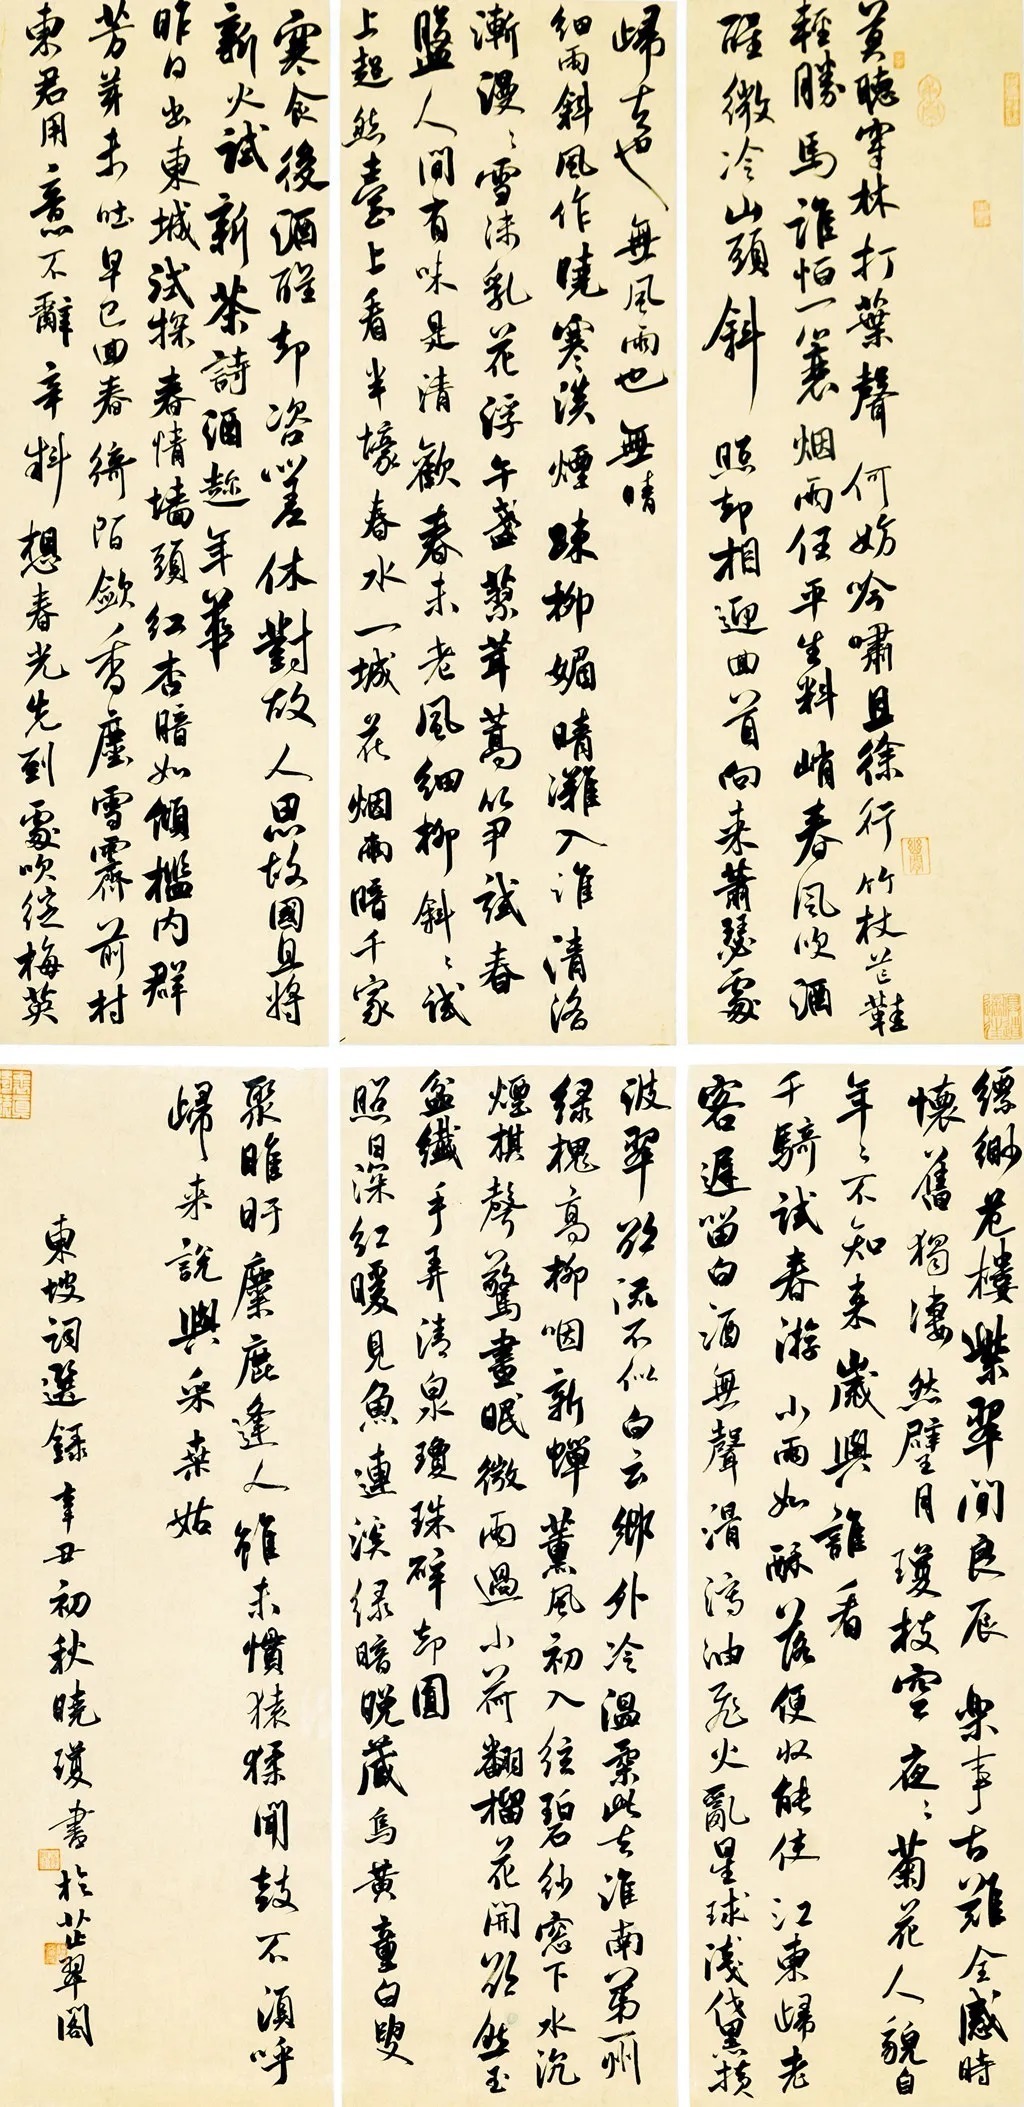 莫聽穿林打葉聲 何妨吟嘯且徐行 竹杖芒鞋
輕勝馬 誰怕一蓑烟雨任平生 料峭春風吹酒
醒微冷山頭斜 照却相迎回首向来蕭瑟處
歸去也無風雨也無晴
細雨斜風作曉寒淡煙疎柳媚晴灘入淮清洛
漸漫〻雪沫乳花浮午盞蓼茸蒿筍試春
盤人間有味是清歡春未老風細柳斜〻試
上超然臺上看半壕春水一城花烟雨暗千家
寒食後酒醒却咨嗟休對故人思故國且將
新火試新茶詩酒趁年華
昨日出東城試探春情墻頭紅杏暗如傾檻內群
芳芽未吐早已回春綺陌斂香塵雪霽前村
東君用意不辭辛料想春光先到處吹綻梅英
縹緲危樓紫翠間良辰樂事古難全感時
懷舊獨凄然璧月瓊枝空夜〻菊花人貌自
年〻不知来歲與誰看
千騎試春游小雨如酥落便收能使江東歸老
客遲留白酒無聲滑瀉油飛火亂星球淺黛橫
波翠欲流不似白云鄉外冷溫柔此去淮南第一州
綠槐高柳咽新蟬薰風初入弦碧紗窓下水沉
煙棋聲驚晝眠微雨過小荷翻榴花開欲然玉
盆纖手弄清泉瓊珠碎却圓
照日深紅暖見魚連溪綠暗晚藏烏黃童白叟
聚睢盱麋鹿逢人雖未慣猿猱聞鼓不須呼
歸来說與采桑姑
東坡詞選錄辛丑初秋曉瓊書於芷翠閣